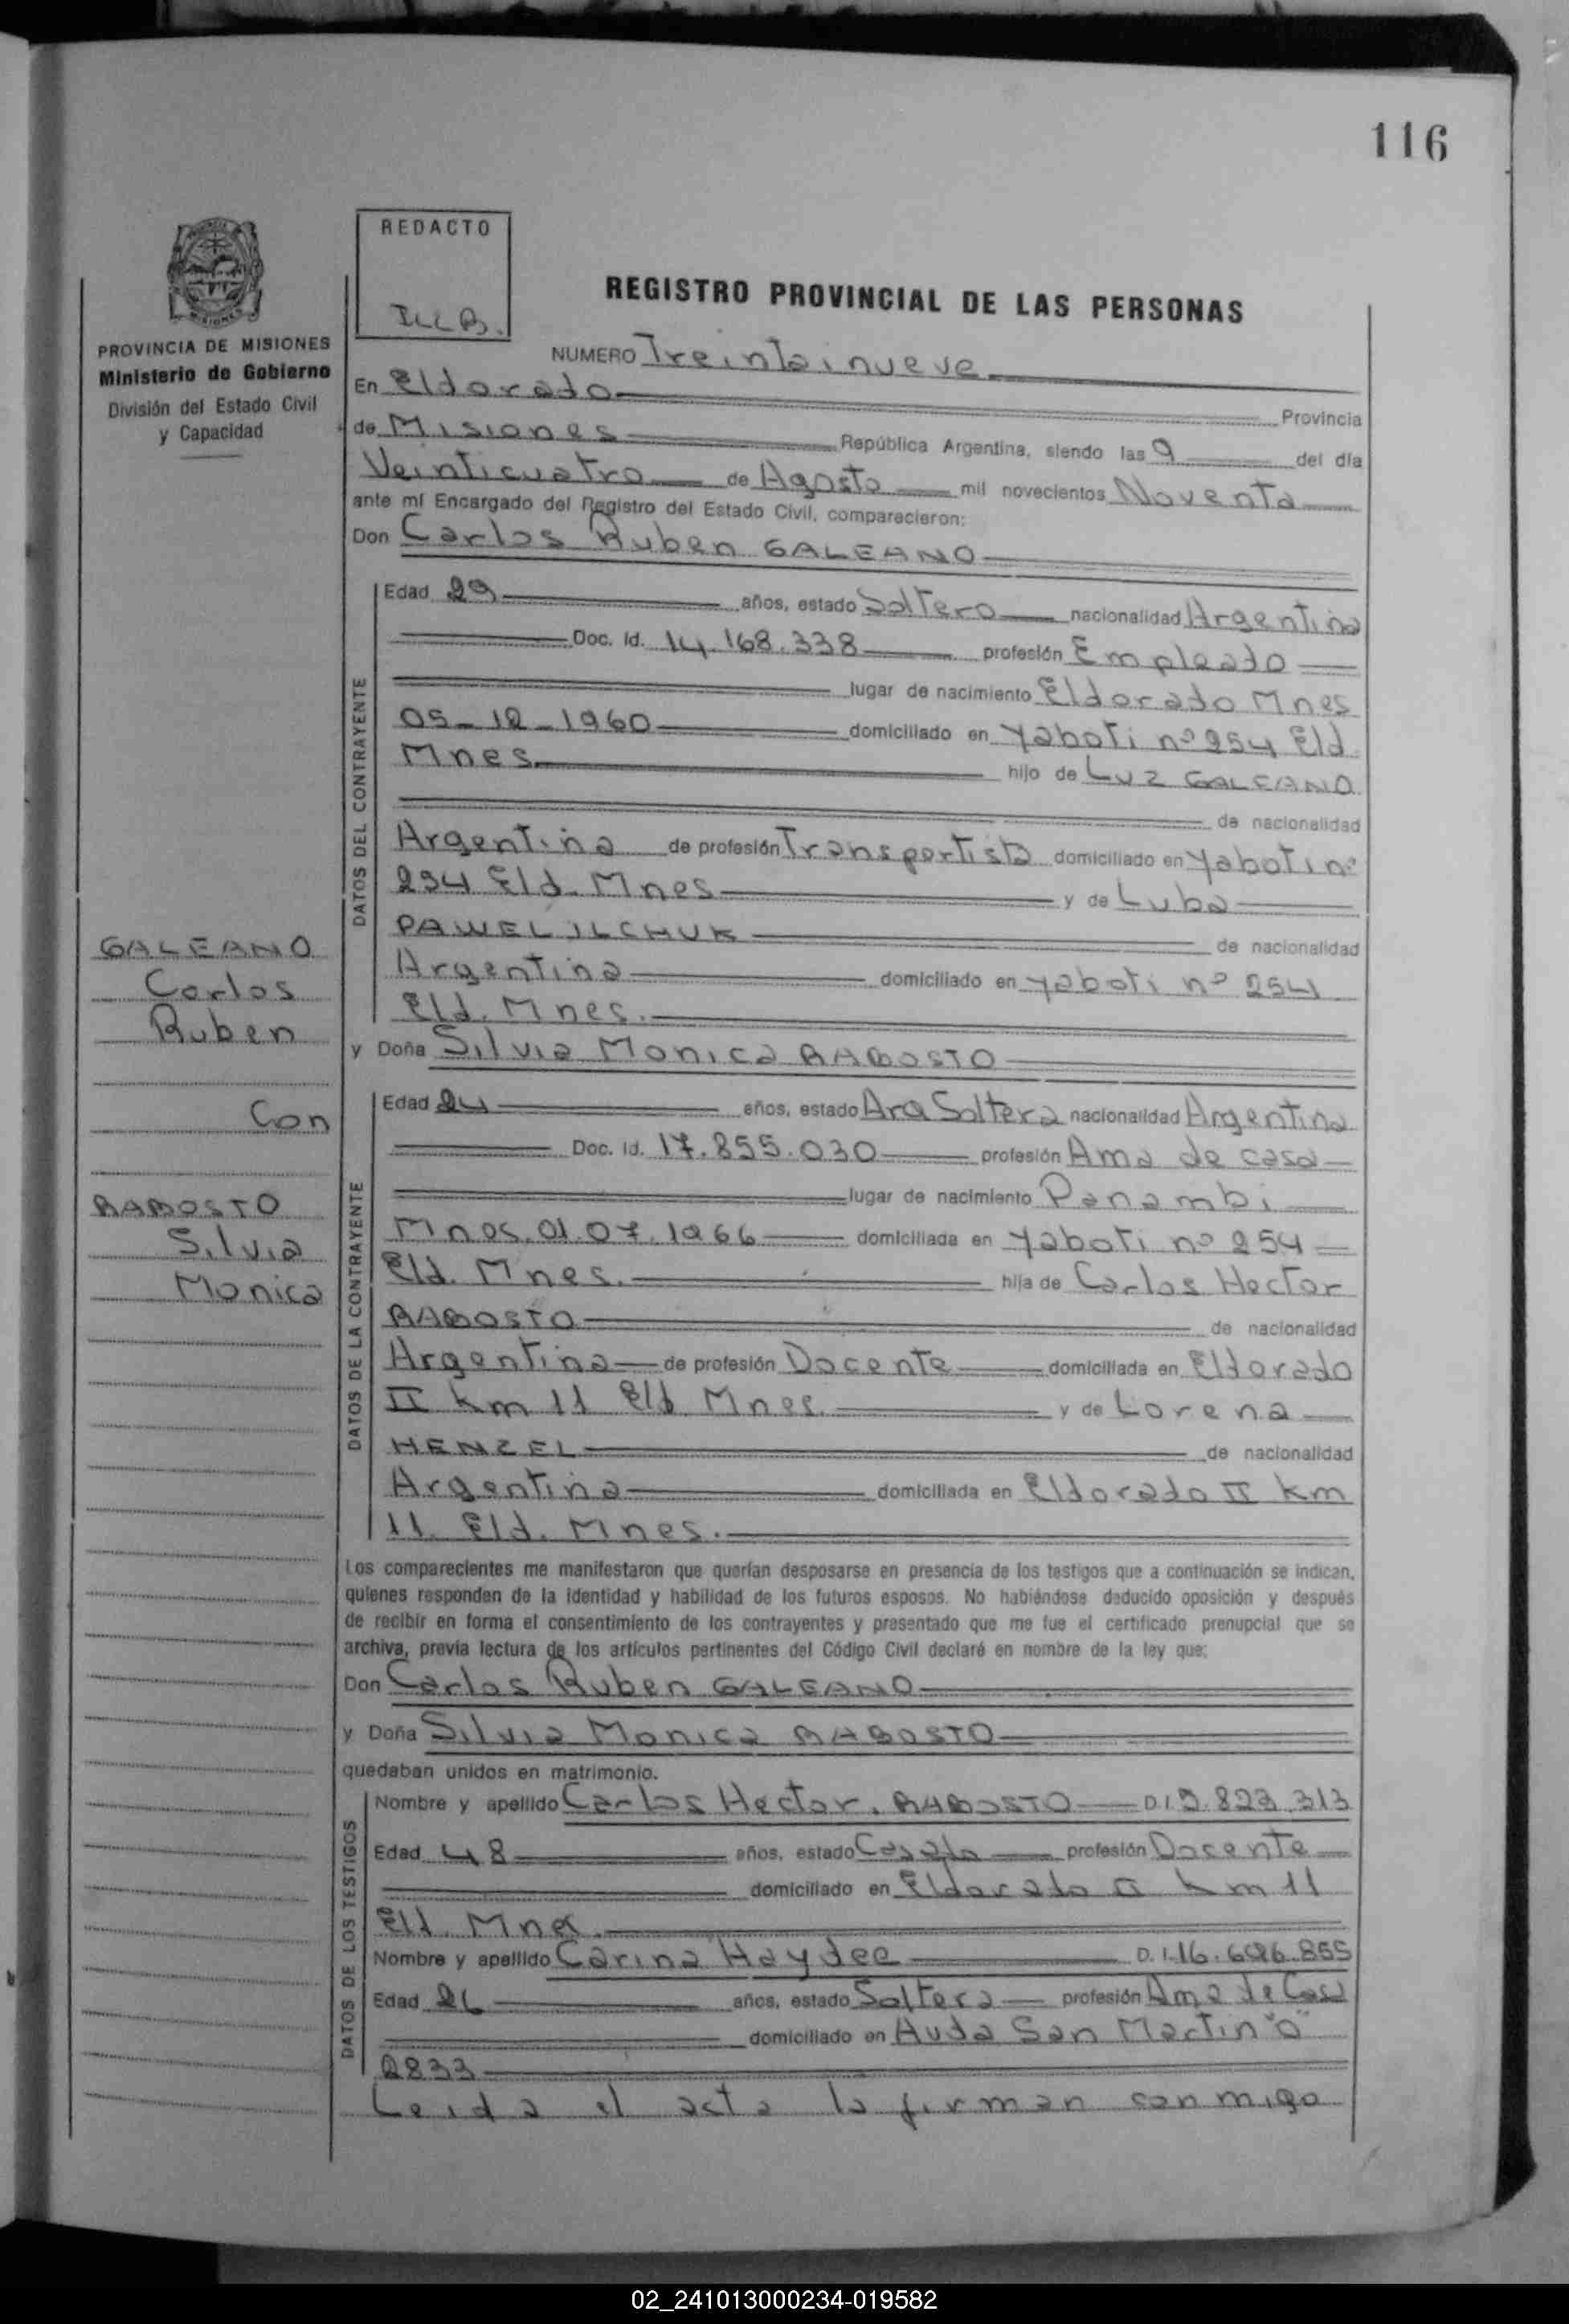 116
REDACTO
ILLB.
REGISTRO PROVINCIAL DE LAS PERSONAS
PROVINCIA DE MISIONES
Ministerio de Gobierno
División del Estado Civil
y Capacidad
NUMERO Treintainueve
En Eldorado Provincia
de Misiones República Argentina, siendo las 9 del día
Veinticuatro de Agosto mil novecientos Noventa
ante mí Encargado del Registro del Estado Civil, comparecieron:
Don Carlos Ruben GALEANO
DATOS DEL CONTRAYENTE
Edad 29 años, estado Soltero nacionalidad Argentina
Doc. Id. 14.168.338 profesión Empleado
lugar de nacimiento Eldorado Mnes
05-12-1960 domiciliado en Yaboti nº 254 Eld.
Mnes. hijo de Luz GALEANO
de nacionalidad
Argentina de profesión Transportista domiciliado en Yaboti nº
254 Eld. Mnes y de Luba
PAWELILCHUK de nacionalidad
Argentina domiciliado en Yaboti nº 254
Eld. Mnes.
y Doña Silvia Monica RABOSTO
DATOS DE LA CONTRAYENTE
Edad 24 años, estado Ara Soltera nacionalidad Argentina
Doc. Id. 17.855.030 profesión Ama de casa
lugar de nacimiento Panambi
Mnes. 01.07.1966 domiciliada en Yaboti nº 254
Eld. Mnes. hija de Carlos Hector
RABOSTO de nacionalidad
Argentina de profesión Docente domiciliada en Eldorado
II Km 11 Eld Mnes. y de Lorena
HENZEL de nacionalidad
Argentina domiciliada en Eldorado II Km
11. Eld. Mnes.
GALEANO
Carlos
Ruben
Con
RABOSTO
Silvia
Monica
Los comparecientes me manifestaron que querían desposarse en presencia de los testigos que a continuación se indican,
quienes responden de la identidad y habilidad de los futuros esposos. No habiéndose deducido oposición y después
de recibir en forma el consentimiento de los contrayentes y presentado que me fue el certificado prenupcial que se
archiva, previa lectura de los artículos pertinentes del Código Civil declaré en nombre de la ley que:
Don Carlos Ruben GALEANO
y Doña Silvia Monica RABOSTO
quedaban unidos en matrimonio.
DATOS DE LOS TESTIGOS
Nombre y apellido Carlos Hector. RABOSTO D.I. 5.823.313
Edad 48 años, estado Casado profesión Docente
domiciliado en Eldorado II Km 11
Eld. Mnes.
Nombre y apellido Carina Haydee D.I. 16.696.855
Edad 26 años, estado Soltera profesión Ama de Casa
domiciliado en Avda San Martin "O"
2833
Leida el acta la firman conmigo
02_241013000234-019582